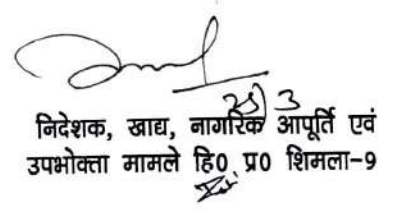 निदेशक, खाद्य, नागरिक आपूर्ति एवं
उपभोक्ता मामले हि0 प्र0 शिमला-9